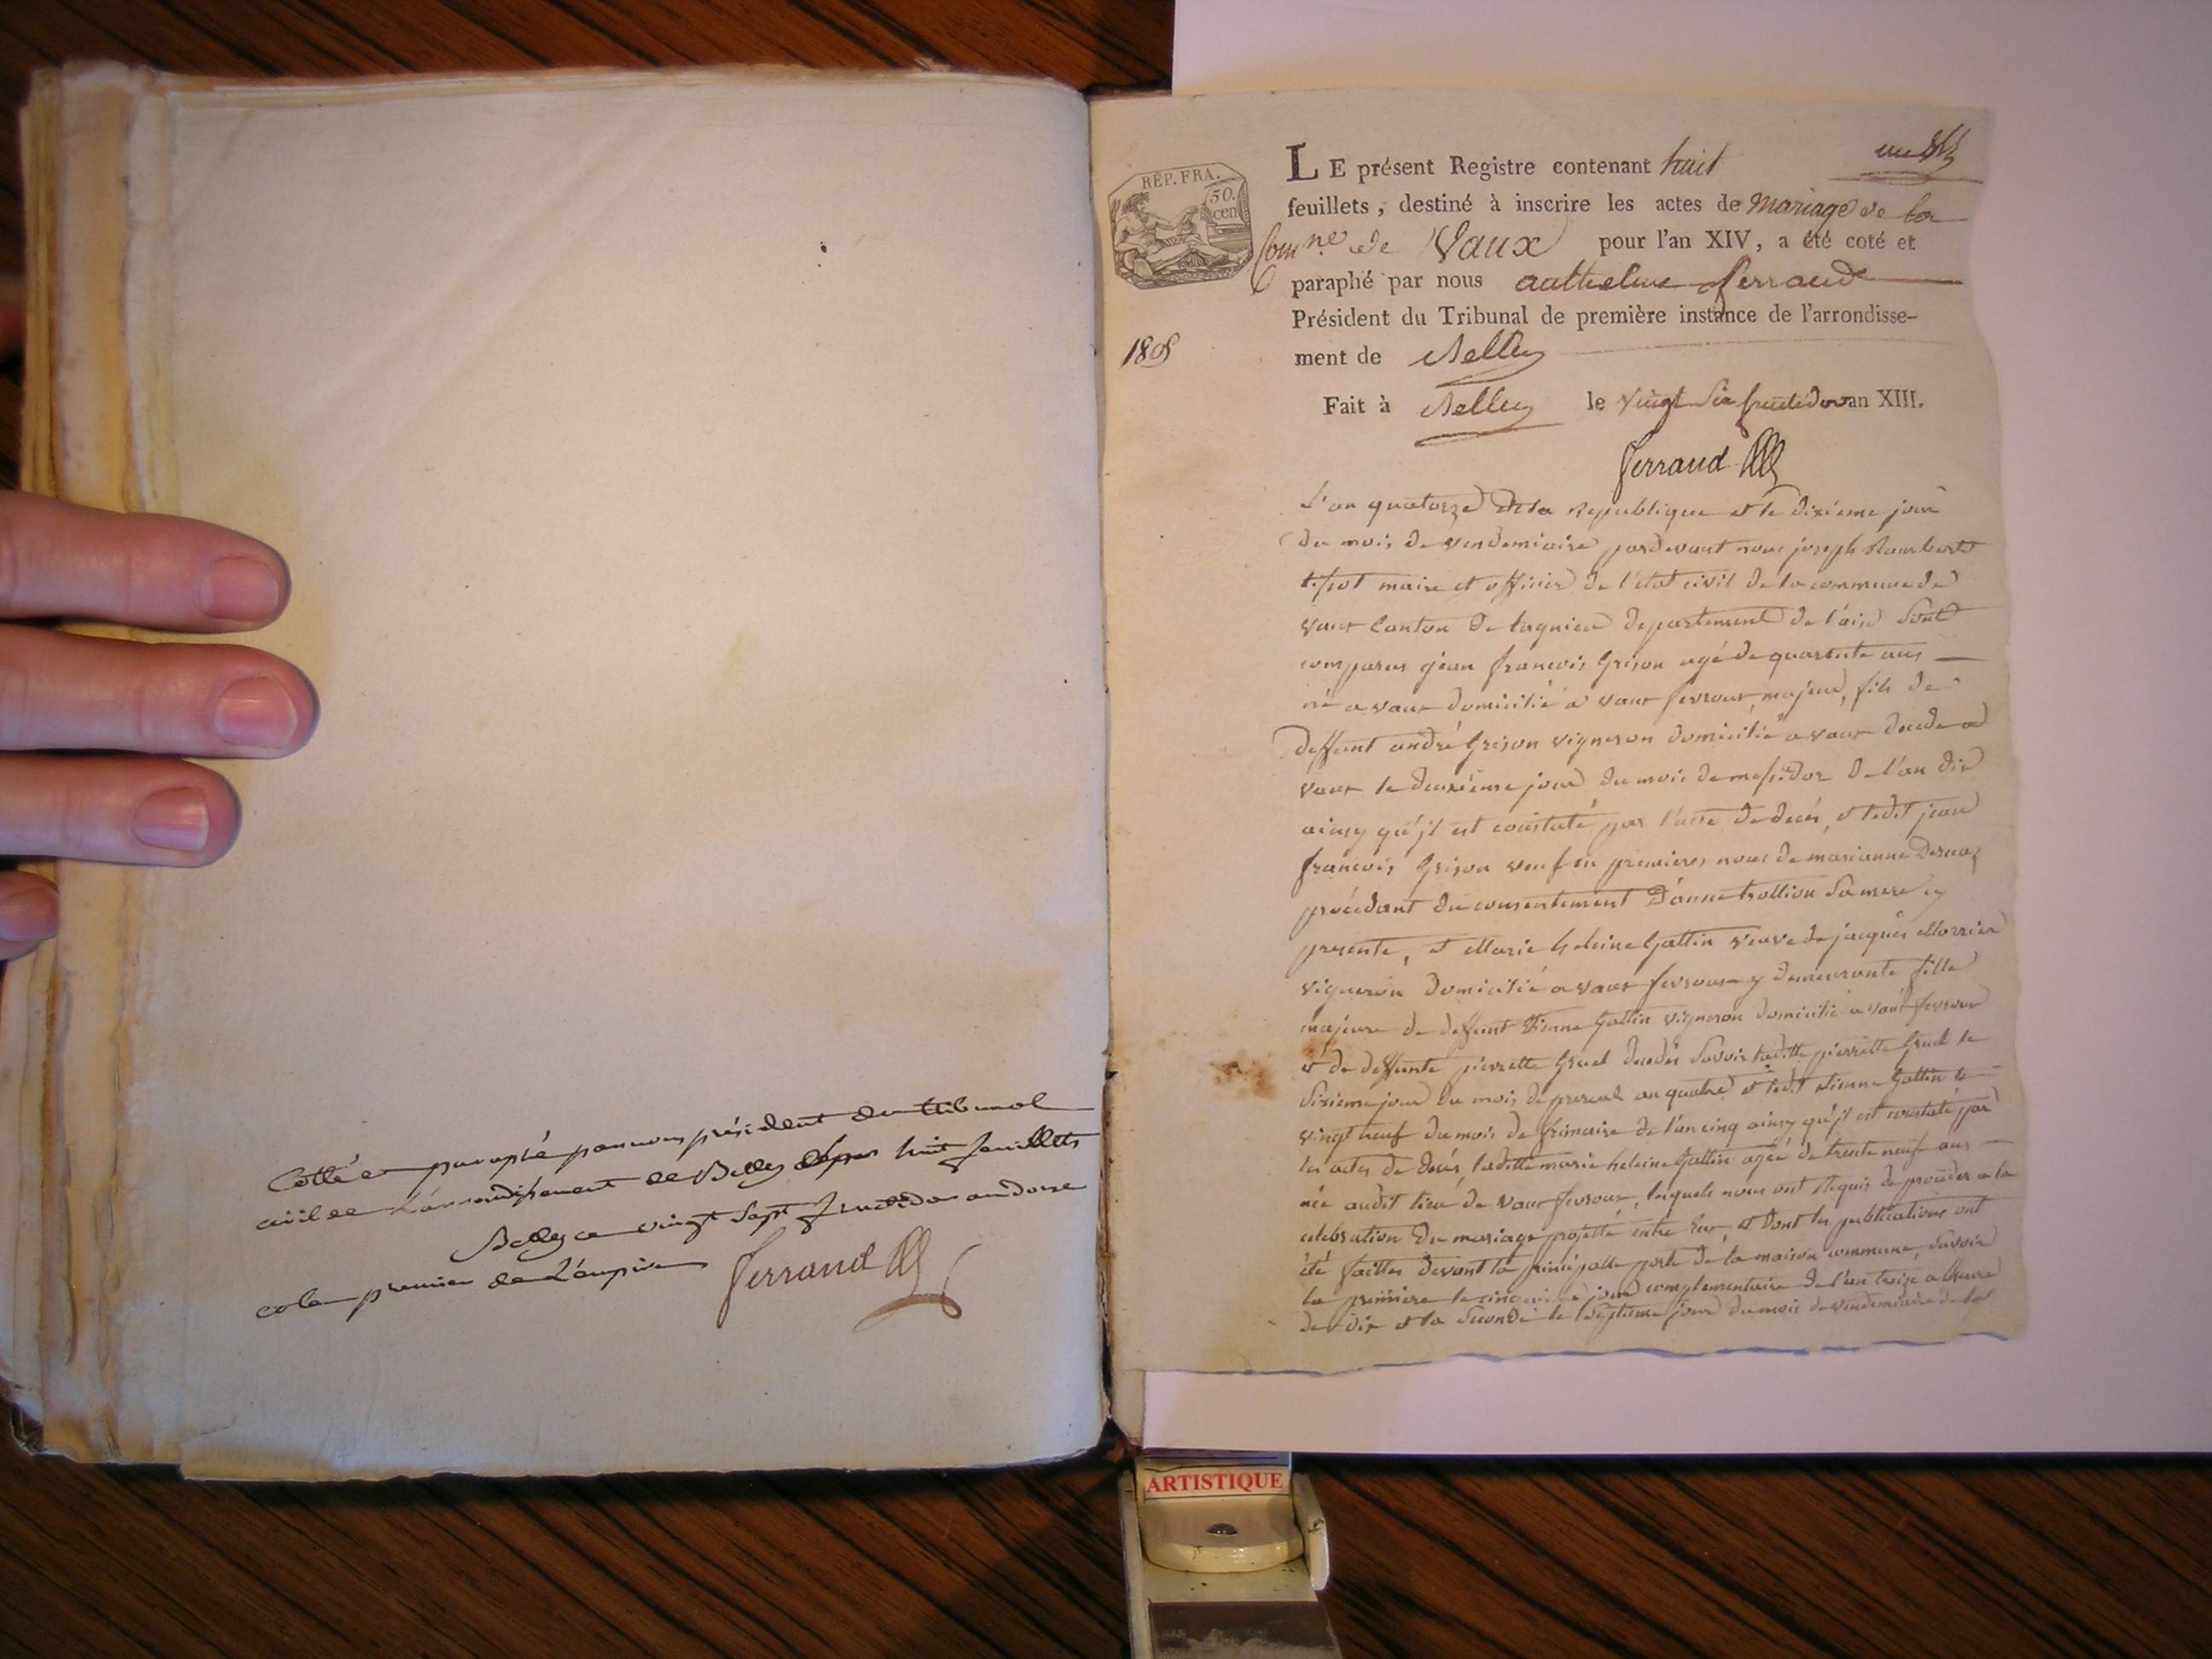 Cotté et paraphé par nous président du tribunal
civil de l'arrondissement de Belley huit feuillets
Belley ce vingt sept fructidor an douze
et le premier de l'empire
Ferrand
REP. FRA.
50.
cen
1805
LE présent Registre contenant huit
un
feuillets, destiné à inscrire les actes de Mariage de la
Comne de Vaux pour l'an XIV, a été coté et
paraphé par nous anthelme ferrand
Président du Tribunal de première instance de l'arrondisse-
ment de Belley
Fait à Belley le vingt Six fructidor an XIII.
Ferrand
L'an quatorze de la Republique et le dixieme jour
du mois de vendemiaire pardevant nous joseph Rambert
tissot maire et officier de l'état civil de la commune de
vaux Canton de lagnieu departement de l'ain Sont
comparus jean françois Grison agé de quarante ans
né a vaux domicilié a vaux fevroux, majeur, fils de
deffunt andré Grison vigneron domicilié a vaux decede a
vaux le deuxieme jour du mois de messidor de l'an dix
ainsy qu'jl est constaté par l'acte de decés, et ledit jean
françois Grison veuf en premieres noces de marianne
procédant du consentement D'anne trollion Sa mere cy
presente, et Marie heleine Gallin veuve de jacques Morrier
vigneron domicilié a vaux fevroux y demeurante fille
majeure de deffunt Etienne Gallin vigneron domicilié a vaux fevroux
et de deffunte pierrette Gruel decedés Savoir laditte pierrette Gruel le
Sixieme jour du mois de prereal an quatre et ledit etienne Gallin le
vingt neuf du mois de frimaire de l'an cinq ainsy qu'jl est constaté par
les actes de decés, laditte marie heleine Gallin agée de trente neuf ans
née audit lieu de vaux fevroux, lesquels nous ont Requis de proceder a la
celebration du mariage projetté entre Eux, et dont les publications ont
été faittes devant la principalle porte de la maison commune, Savoir
la premiere le cinquieme jour complementaire de l'an treize a lheure
de dix et la Seconde le Septieme jour du mois de vendemiaire de la
ARTISTIQUE